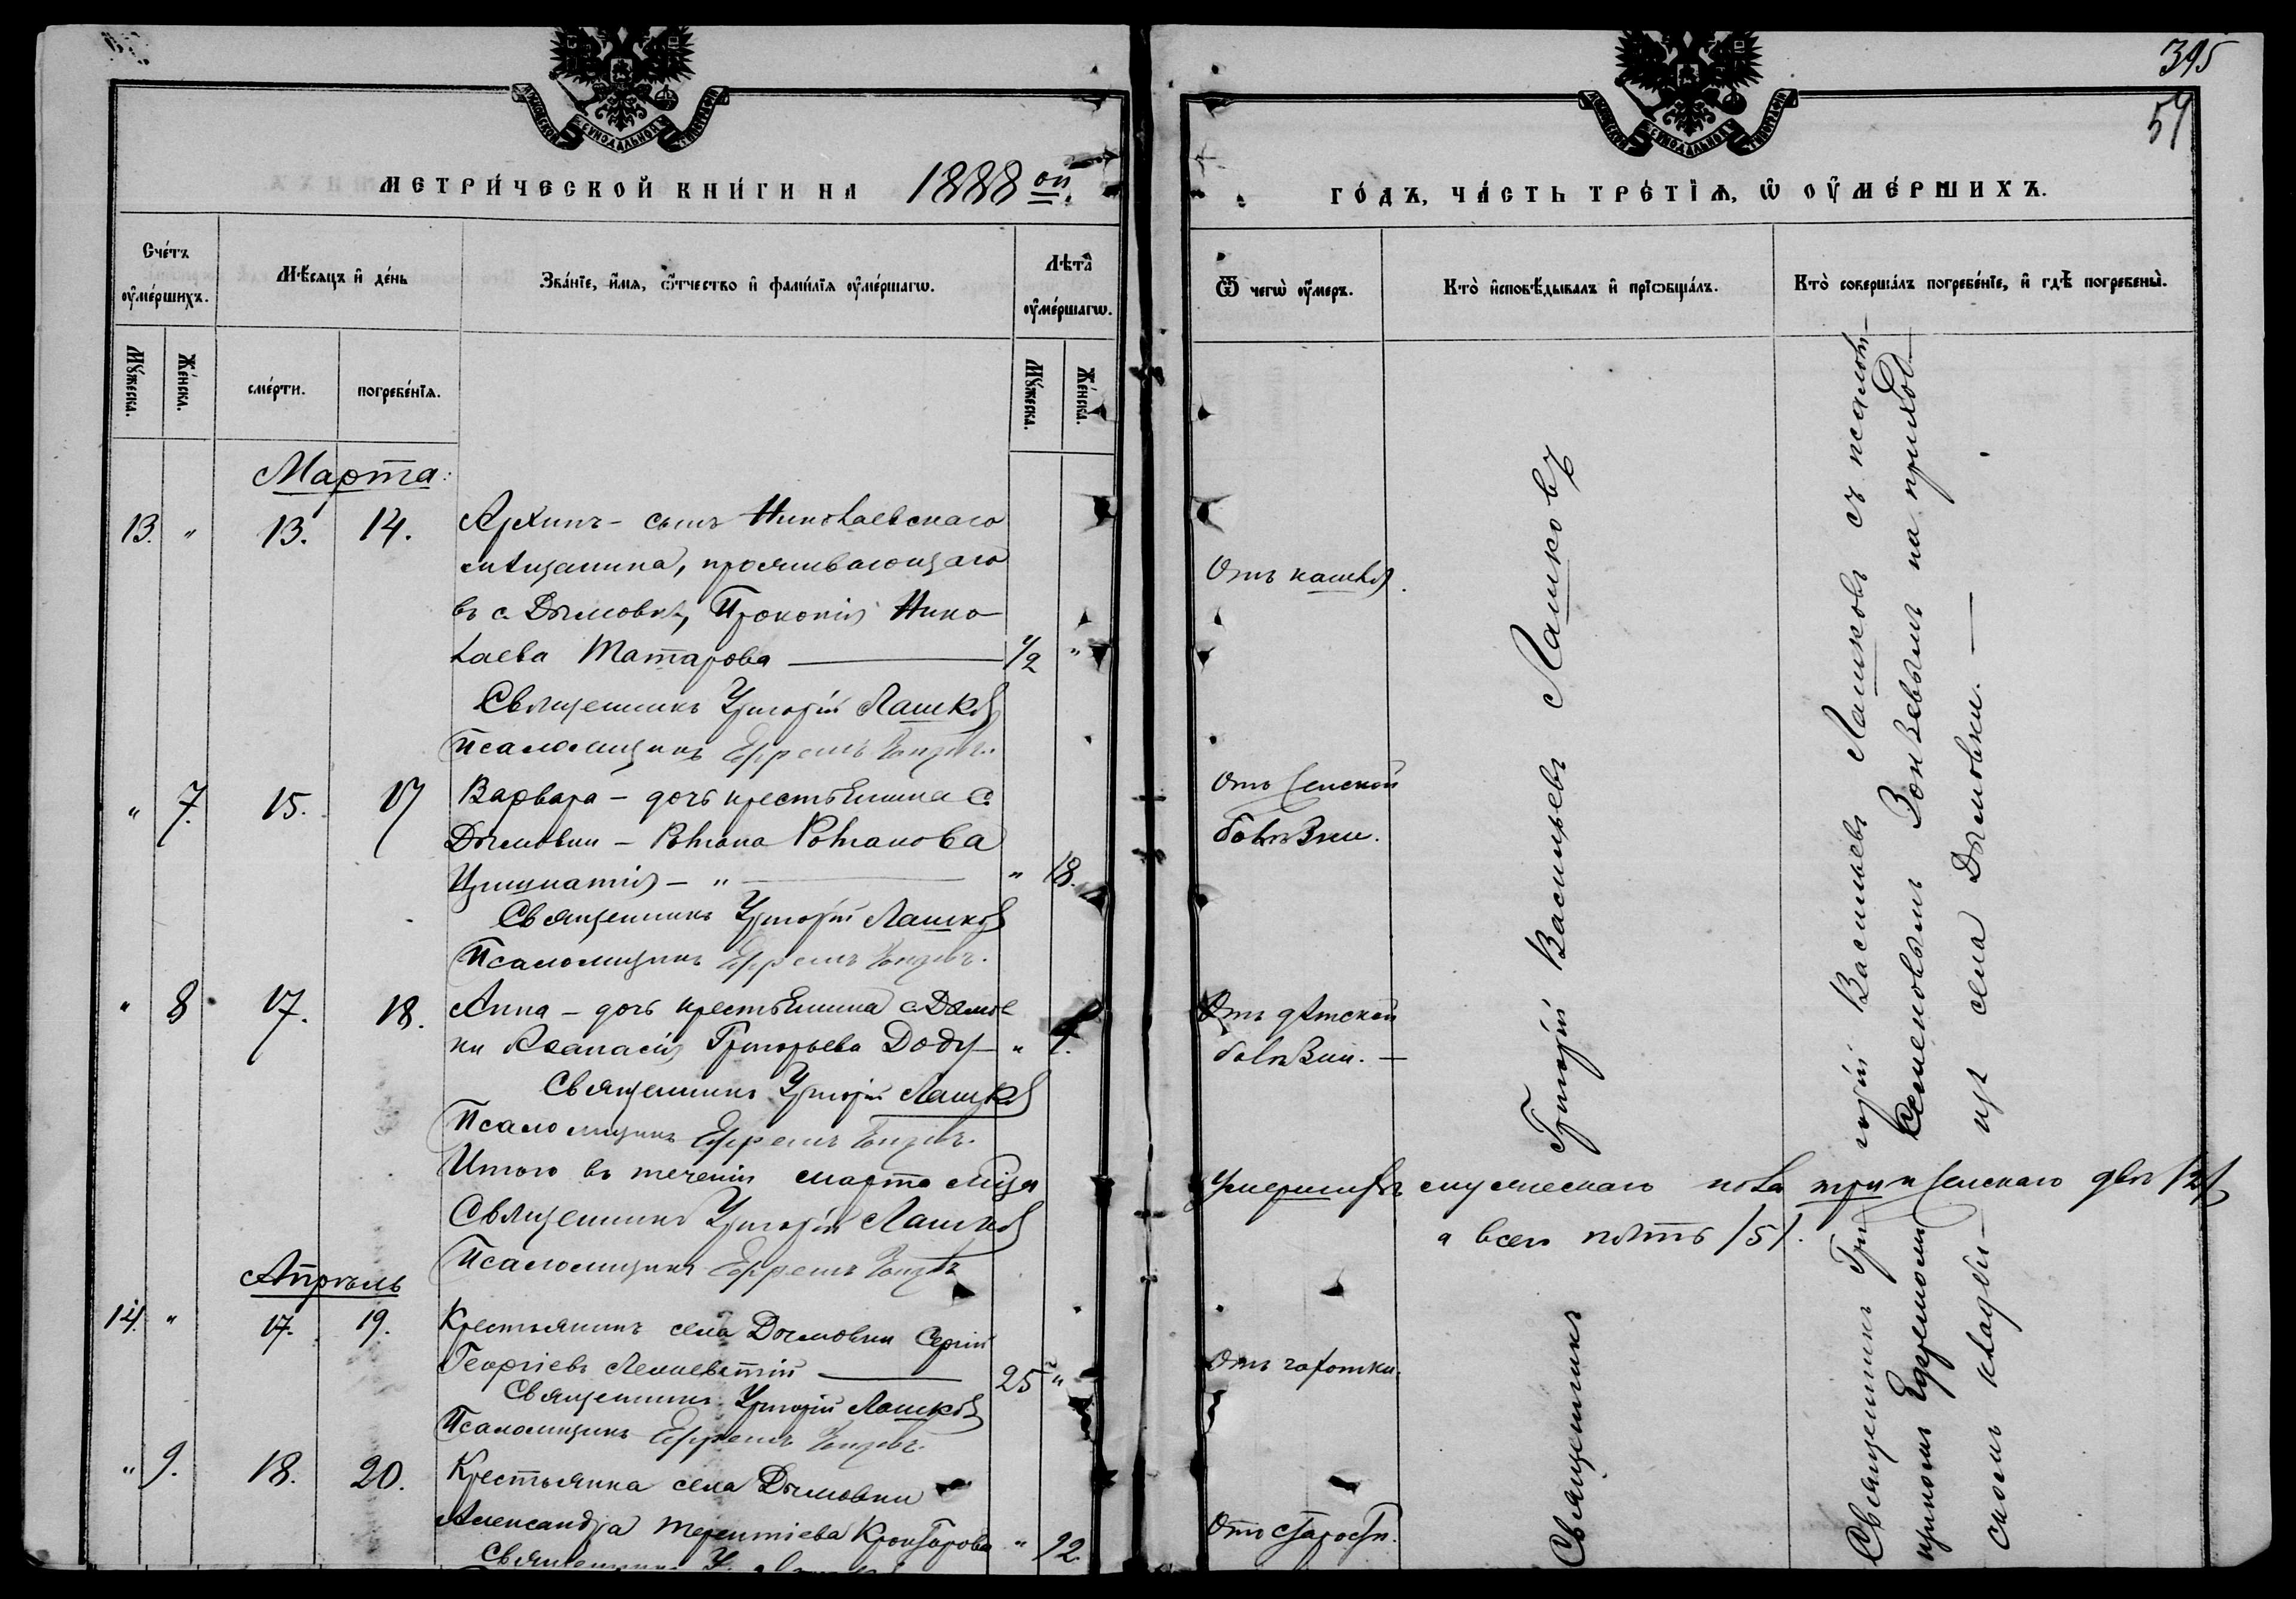 395
57
МОСКОВСКОЙ СѴНОДАЛЬНОЙ ТИПОГРАФІИ
МОСКОВСКОЙ СѴНОДАЛЬНОЙ ТИПОГРАФІИ
МЕТРИ́ЧЕСКОЙ КНИ́ГИ НА 1888 ой
ГО́ДЪ, ЧА́СТЬ ТРЕ́ТІѦ, Ѡ ОУ҆МЕ́РШИХЪ.
Сче́тъ оу҆ме́ршихъ.
Мѣ́сѧцъ и҆ де́нь
Зва́нїе, и҆́мѧ, ѻ҆́тчество и҆ фами́лїѧ оу҆ме́ршагѡ.
Лѣ́та оу҆ме́ршагѡ.
Ѿ чегѡ̀ оу҆́меръ.
Кто̀ и҆сповѣ́дывалъ и҆ прїѡбща́лъ.
Кто̀ соверша́лъ погребе́нїе, и҆ гдѣ̀ погребены̀.
Мꙋ́жеска.
Же́нска.
сме́рти.
погребе́нїѧ.
Мꙋ́жеска.
Же́нска.
Марта:
13. " 13. 14. Архипъ - сынъ Николаевскаго
мѣщанина, проживающаго
въ с. Дымовкѣ, Прокопія Нико-
лаева Татарова — 1/2 "
Отъ кашля.
Священникъ Григорій Лашковъ
Псаломщикъ Ефремъ
" 7. 15. 17 Варвара - дочь крестьянина с.
Дымовки - Романа Романова
" — " 18.
Отъ женской
болѣзни.
Священникъ Григорій Лашковъ
Псаломщикъ Ефремъ
" 8 17. 18. Анна - дочь крестьянина с. Дымов
ки Аѳанасія Григорьева Доду — " 1.
Отъ дѣтской
болѣзни. —
Священникъ Григорій Лашковъ
Псаломщикъ Ефремъ
Итого въ теченіи марта м-ца умершихъ мужескаго пола три и женскаго двѣ /2/
а всего пять /5/.
Священникъ Григорій Лашковъ
Псаломщикъ Ефремъ
Апрѣль
14. " 17. 19. Крестьянинъ села Дымовки Сергій
Георгіевъ — 25 "
Отъ чахотки.
Священникъ Григорій Лашковъ
Псаломщикъ Ефремъ
" 9. 18. 20. Крестьянка села Дымовки
Александра Терентіева " 92.
Отъ старости.
Священникъ
Священникъ Григорій Васильевъ Лашковъ
Священникъ Григорій Васильевъ Лашковъ съ псалом-
щикомъ Ефремомъ Семеновымъ на приход-
скомъ кладбищѣ села Дымовки. —